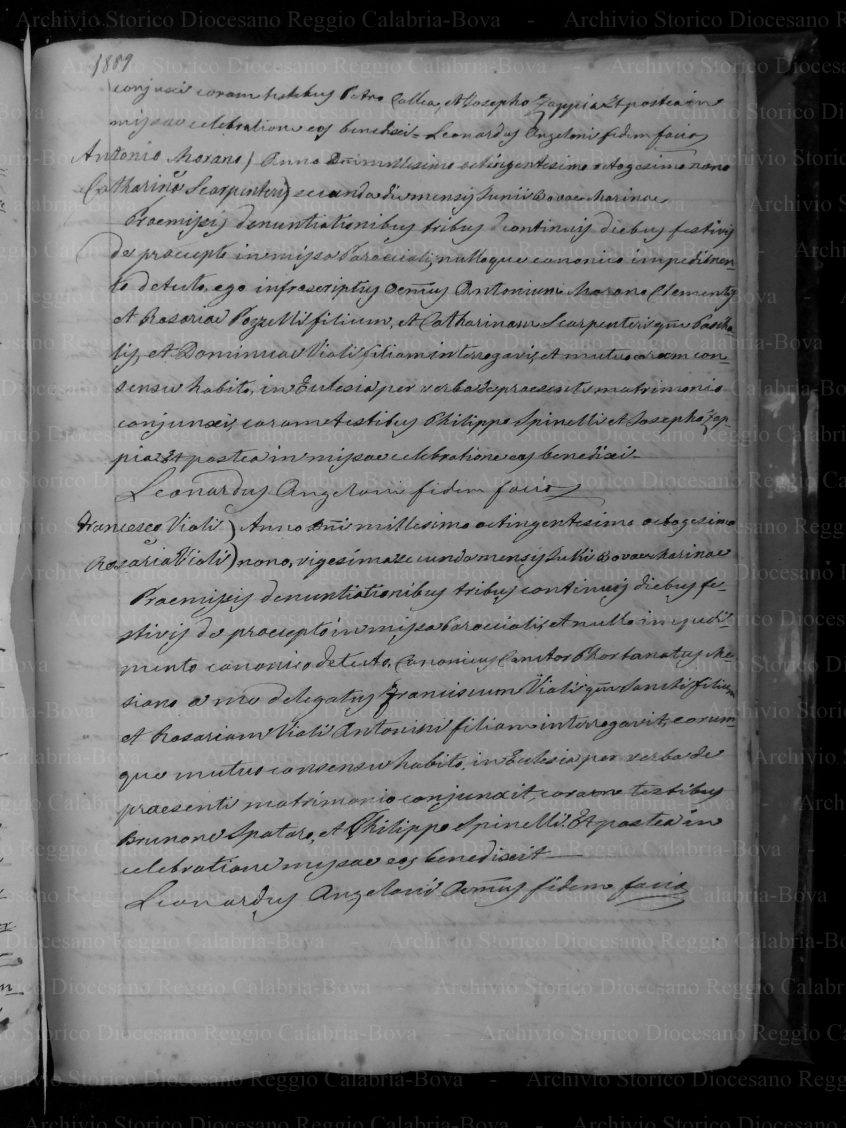 1889
conjunxi coram testibus Petro Callea, et Josepho Zappia Et postea in
missae celebratione eos benedixi = Leonardus Angeloni fidem facio
Antonio Morano) Anno Dñi millesimo octingentesimo octogesimo nono
Catharina Scarpenteri) secunda die mensis Junii Bovae Marinae
Praemissis denuntiationibus tribus continuis diebus festivis
de praecepto in missa Paroeciali, nulloque canonico impedimen-
to detecto, ego infrascriptus Oecmus Antonium Morano Clementis
et Rosariae Pozzelli filium, et Catharinam Scarpenteri qm Pascha
lis, et Dominicae Violi filiam interrogavi, et mutuo eorum con-
sensu habito, in Eclesia per verba de praesenti matrimonio
conjunxi, coram testibus Philippo Spinelli et Josepho Zap-
pia Et postea in missae celebratione eos benedixi -
Leonardus Angeloni fidem facio
Francesco Violi) Anno Dñi millesimo octingentesimo octogesimo
Rosaria Violi) nono, vigesima secunda mensis Julii Bovae Marinae
Praemissis denuntiationibus tribus continuis diebus fe-
stivis de praecepto in missa Paroeciali, et nullo impedi-
mento canonico detecto, Canonicus Cantor Phortunatus Me-
siano a me delegatus Franciscum Violi qm Sancti filium
et Rosariam Violi Antonini filiam interrogavit, eorum-
que mutuo consensu habito, in Eclesia per verba de
praesenti matrimonio conjunxit, coram testibus
Brunone Spataro, et Philippo Spinelli. Et postea in
celebratione missae eos benedixit
Leonardus Angeloni Oecmus fidem facio
Archivio Storico Diocesano Reggio Calabria-Bova